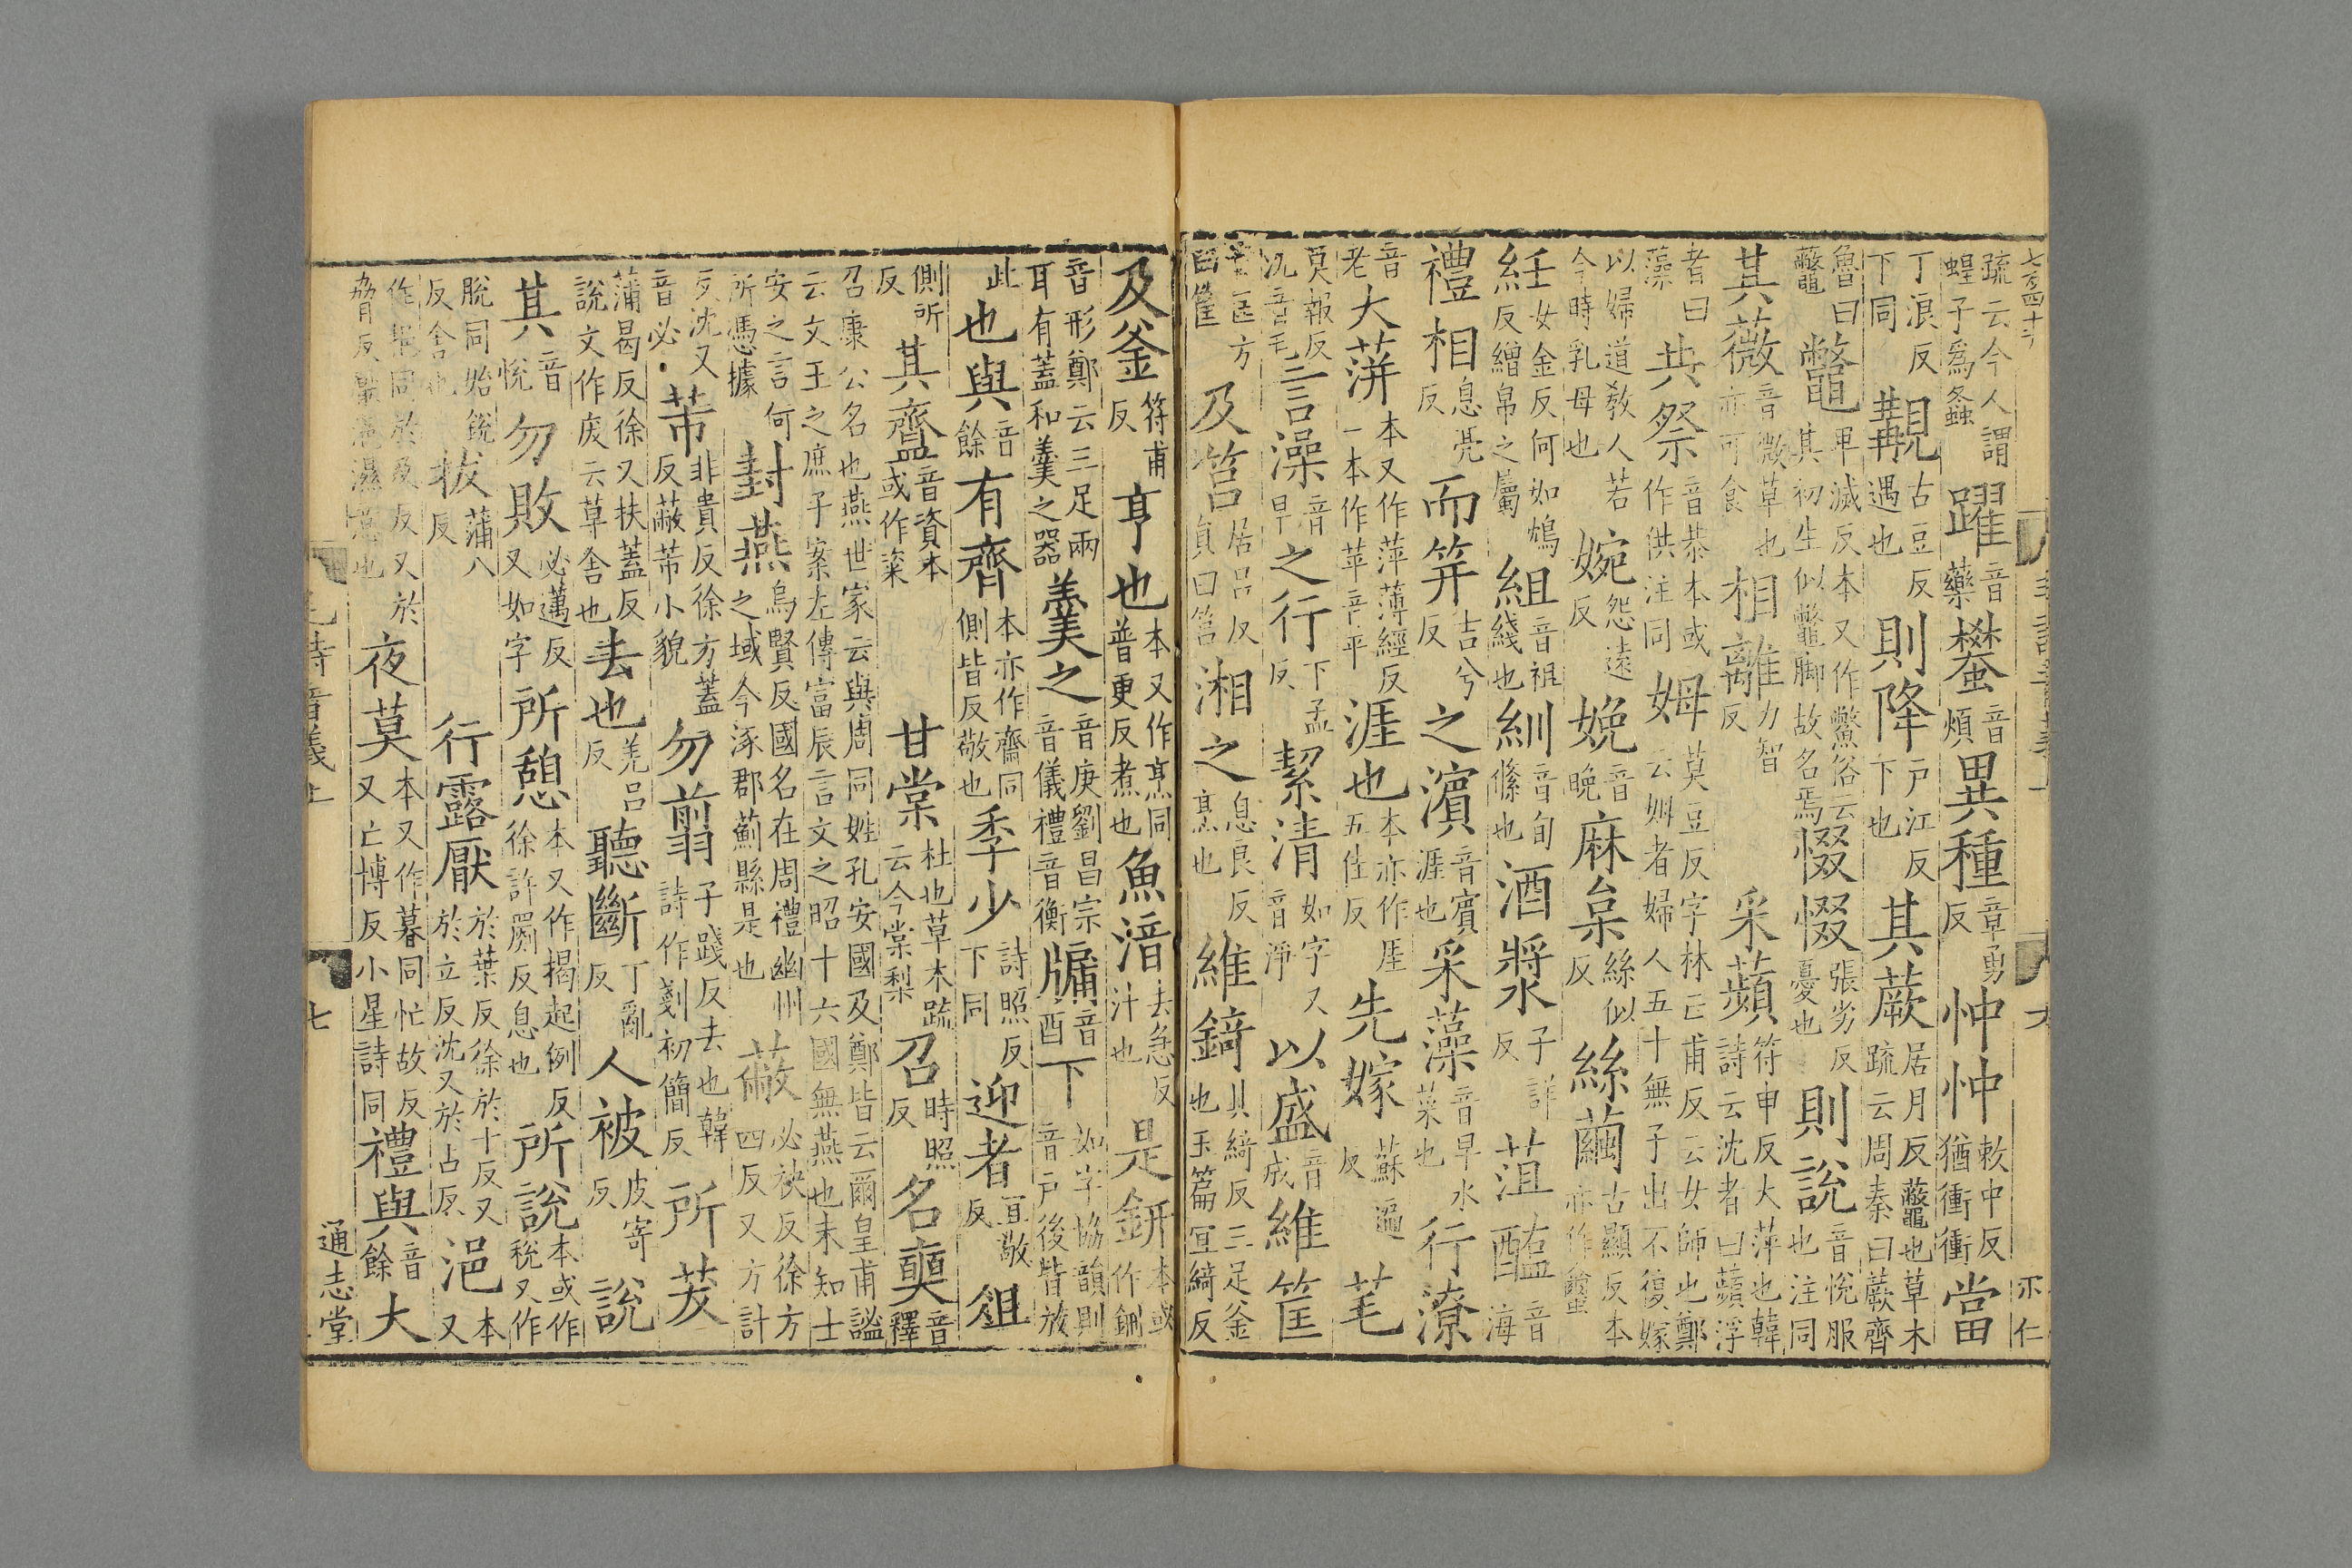 疏云今人謂蝗子爲螽躍音藥蠜音煩異種章勇反忡忡敕中反猶衝衝當
丁浪反下同覯古豆反遇也則降戶江反下也其蕨居月反虌也草木疏云周秦曰蕨齊
魯曰虌鼈卑滅反本又作鱉俗云其初生似鼈脚故名焉惙惙張劣反憂也則說音悅服也注同
其薇音微草也亦可食相離力智反采蘋符申反大萍也韓詩云沈者曰蘋浮
者曰藻共祭音恭本或作供注同姆莫豆反字林亡甫反云女師也鄭云姆者婦人五十無子出不復嫁
以婦道敎人若今時乳母也婉怨遠反娩音晚麻枲絲似反絲繭古顯反本亦作蠒
紝女金反何如鴆反繒帛之屬組音祖綫也紃音旬絛也酒漿子詳反葅醢音海
禮相息亮反而笄吉兮反之濱音賓涯也采藻音早水菜也行潦
音老大蓱本又作萍薄經反一本作苹音平涯也本亦作厓五佳反先嫁蘇遍反芼
莫報反沈音毛言澡音早之行下孟反絜清如字又音淨以盛音成維筐
音匡方曰筐及筥居呂反員曰筥湘之息良反烹也維錡其綺反三足釜也玉篇宜綺反
及釜符甫反亨也本又作烹同普更反煮也魚湆去急反汁也是鈃本或作鉶
音形鄭云三足兩耳有蓋和羹之器羹之音庚劉昌宗音儀禮音衡牖音酉下如字協韻則音戶後皆放
此也與音餘有齊本亦作齋同側皆反敬也季少詩照反下同迎者宜敬反俎
側所反其齍音資本或作粢甘棠杜也草木疏云今棠梨召時照反名奭音釋
召康公名也燕世家云與周同姓孔安國及鄭皆云爾皇甫謐云文王之庶子案左傳富辰言文之昭十六國無燕也未知士
安之言何所憑據封燕烏賢反國名在周禮幽州之域今涿郡薊縣是也蔽必袂反徐方四反又方計
反沈又音必芾非貴反徐方蓋反蔽芾小貌勿翦子踐反去也韓詩作剗初簡反所茇
蒲曷反徐又扶蓋反說文作废云草舍也去也羌呂反聽斷丁亂反人被皮寄反說
其音悅勿敗必邁反又如字所憩本又作揭起例反徐許罽反息也所說本或作稅又作
脫同始銳反舍也拔蒲八反行露厭於葉反徐於十反又於立反沈又於占反浥本又
作挹同於及反又於脅反厭浥濕意也夜莫本又作暮同忙故反又亡博反小星詩同禮與音餘大
毛詩音義上
七
通志堂